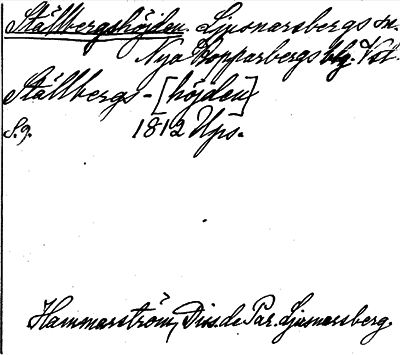 Ställbergshöjden. Ljusnarsbergs sn.
Nya Kopparbergs blg. Vstl.
Ställbergs-[höjden]
S. 9. 1812 Ups.
Hammarström, Diss. de Par. Ljusnarsberg.